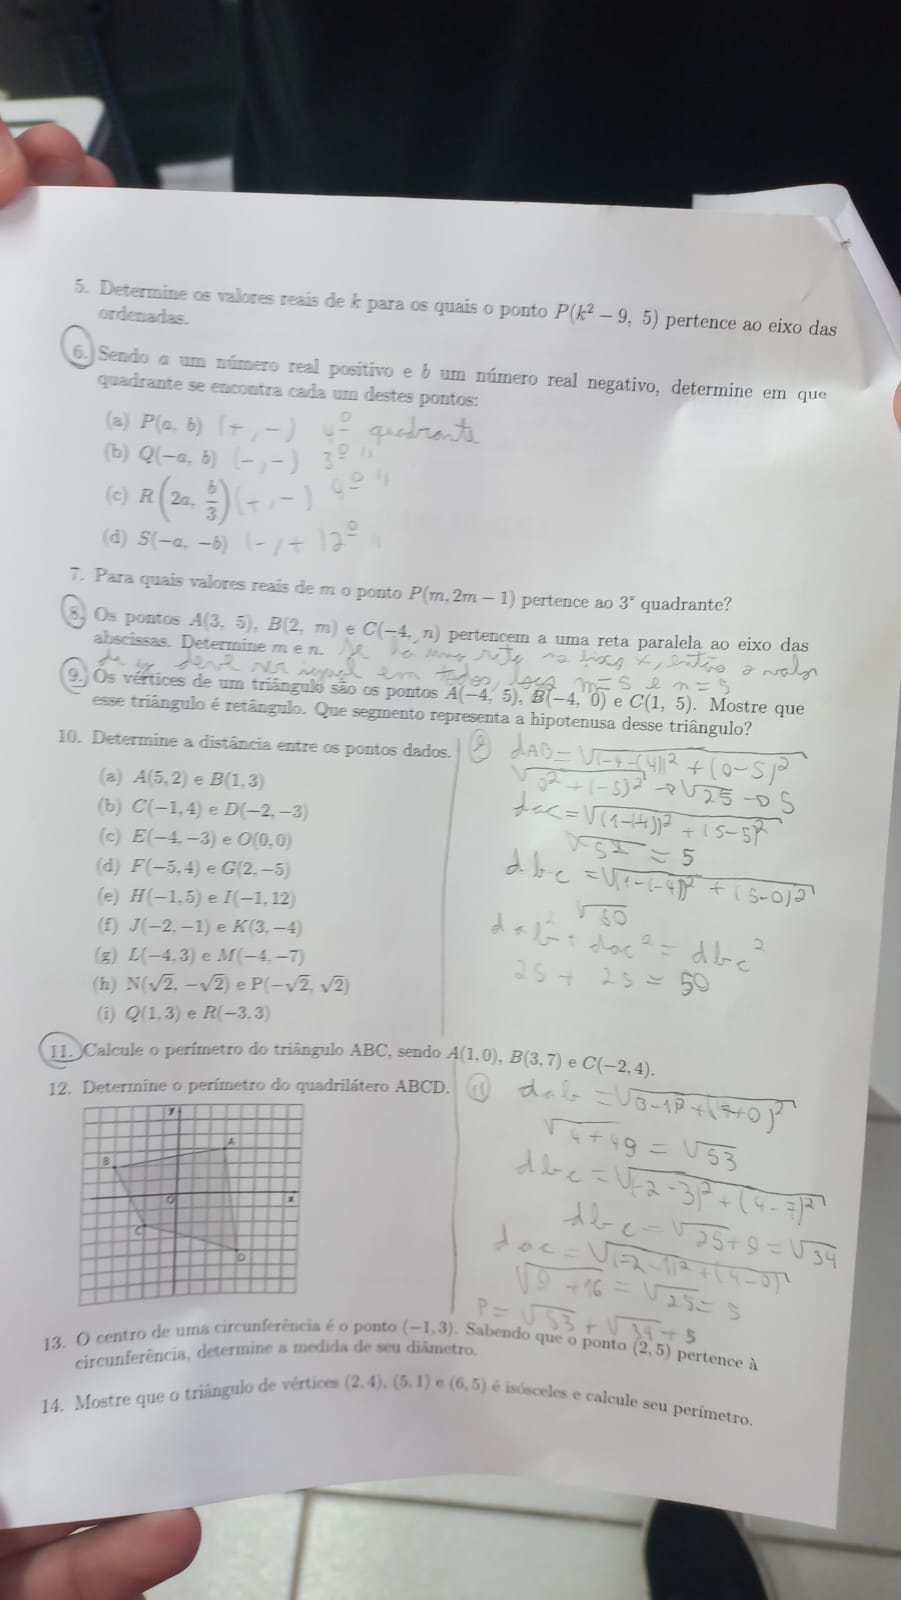 5. Determine os valores reais de k para os quais o ponto P(k² − 9, 5) pertence ao eixo das
ordenadas.
6. Sendo a um número real positivo e b um número real negativo, determine em que
quadrante se encontra cada um destes pontos:
(a) P(a, b) (+,−) 4º quadrante
(b) Q(−a, b) (−,−) 3º "
(c) R(2a, b/3) (+,−) 4º "
(d) S(−a, −b) (−,+) 2º "
7. Para quais valores reais de m o ponto P(m, 2m − 1) pertence ao 3° quadrante?
8. Os pontos A(3, 5), B(2, m) e C(−4, n) pertencem a uma reta paralela ao eixo das
abscissas. Determine m e n. Se há uma reta no eixo x, então o valor
de y deve ser igual em todos, logo m=5 e n=5
9. Os vértices de um triângulo são os pontos A(−4, 5), B(−4, 0) e C(1, 5). Mostre que
esse triângulo é retângulo. Que segmento representa a hipotenusa desse triângulo?
10. Determine a distância entre os pontos dados.
(a) A(5, 2) e B(1, 3)
(b) C(−1, 4) e D(−2, −3)
(c) E(−4, −3) e O(0, 0)
(d) F(−5, 4) e G(2, −5)
(e) H(−1, 5) e I(−1, 12)
(f) J(−2, −1) e K(3, −4)
(g) L(−4, 3) e M(−4, −7)
(h) N(√2, −√2) e P(−√2, √2)
(i) Q(1, 3) e R(−3, 3)
9 dAB = √(−4−(4))² + (0−5)²
√0² + (−5)² → √25 → 5
dac = √(1−(4))² + (5−5)²
√5² = 5
dbc = √(1−(−4))² + (5−0)²
√50
dab² + dac² = dbc²
25 + 25 = 50
11. Calcule o perímetro do triângulo ABC, sendo A(1, 0), B(3, 7) e C(−2, 4).
12. Determine o perímetro do quadrilátero ABCD.
y
A
B
O
x
C
D
11 dab = √(3−1)² + (7+0)²
√4+49 = √53
dbc = √(−2−3)² + (4−7)²
dbc = √25+9 = √34
dac = √(−2−1)² + (4−0)²
√9+16 = √25 = 5
P = √53 + √34 + 5
13. O centro de uma circunferência é o ponto (−1, 3). Sabendo que o ponto (2, 5) pertence à
circunferência, determine a medida de seu diâmetro.
14. Mostre que o triângulo de vértices (2, 4), (5, 1) e (6, 5) é isósceles e calcule seu perímetro.